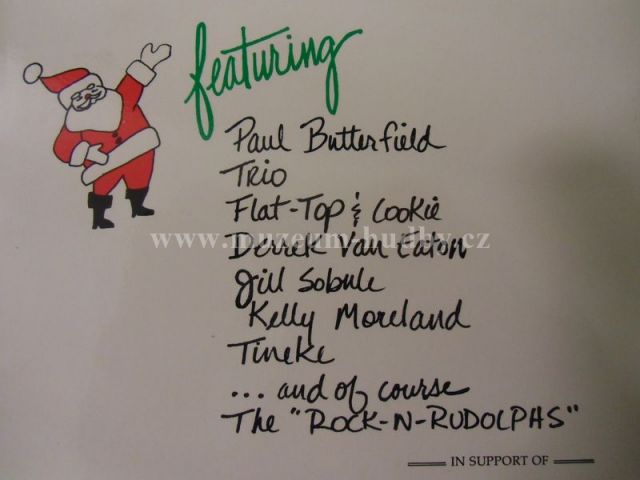 featuring
Paul Butterfield
Trio
Flat-Top & Cookie
www.muzeum-hudby.cz
Derrek Van Eaton
Jill Sobule
Kelly Moreland
Tineke
... and of course
The "ROCK-N-RUDOLPHS"
IN SUPPORT OF